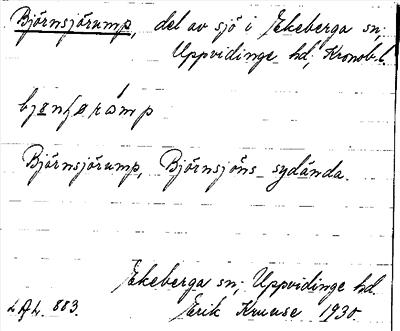 Björnsjörump, del av sjö i Ekeberga sn;
Uppvidinge hd; Kronob.l.
Björnsjörump, Björnsjöns sydända.
Ekeberga sn; Uppvidinge hd.
L.A.L. 883. Erik Kruuse 1930.